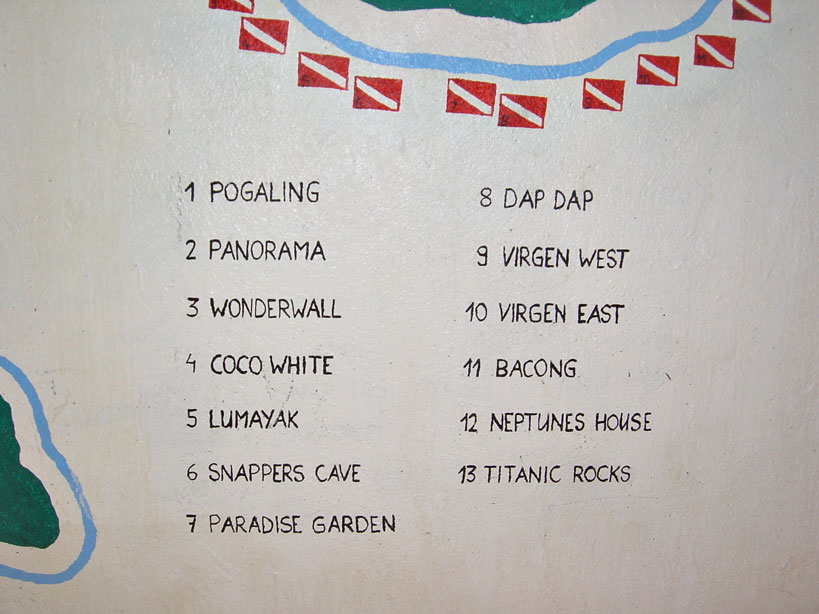 1 POGALING
2 PANORAMA
3 WONDERWALL
4 COCO WHITE
5 LUMAYAK
6 SNAPPERS CAVE
7 PARADISE GARDEN
8 DAP DAP
9 VIRGEN WEST
10 VIRGEN EAST
11 BACONG
12 NEPTUNES HOUSE
13 TITANIC ROCKS